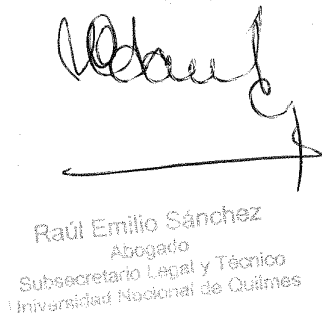 Raúl Emilio Sánchez
Abogado
Subsecretario Legal y Técnico
Universidad Nacional de Quilmes